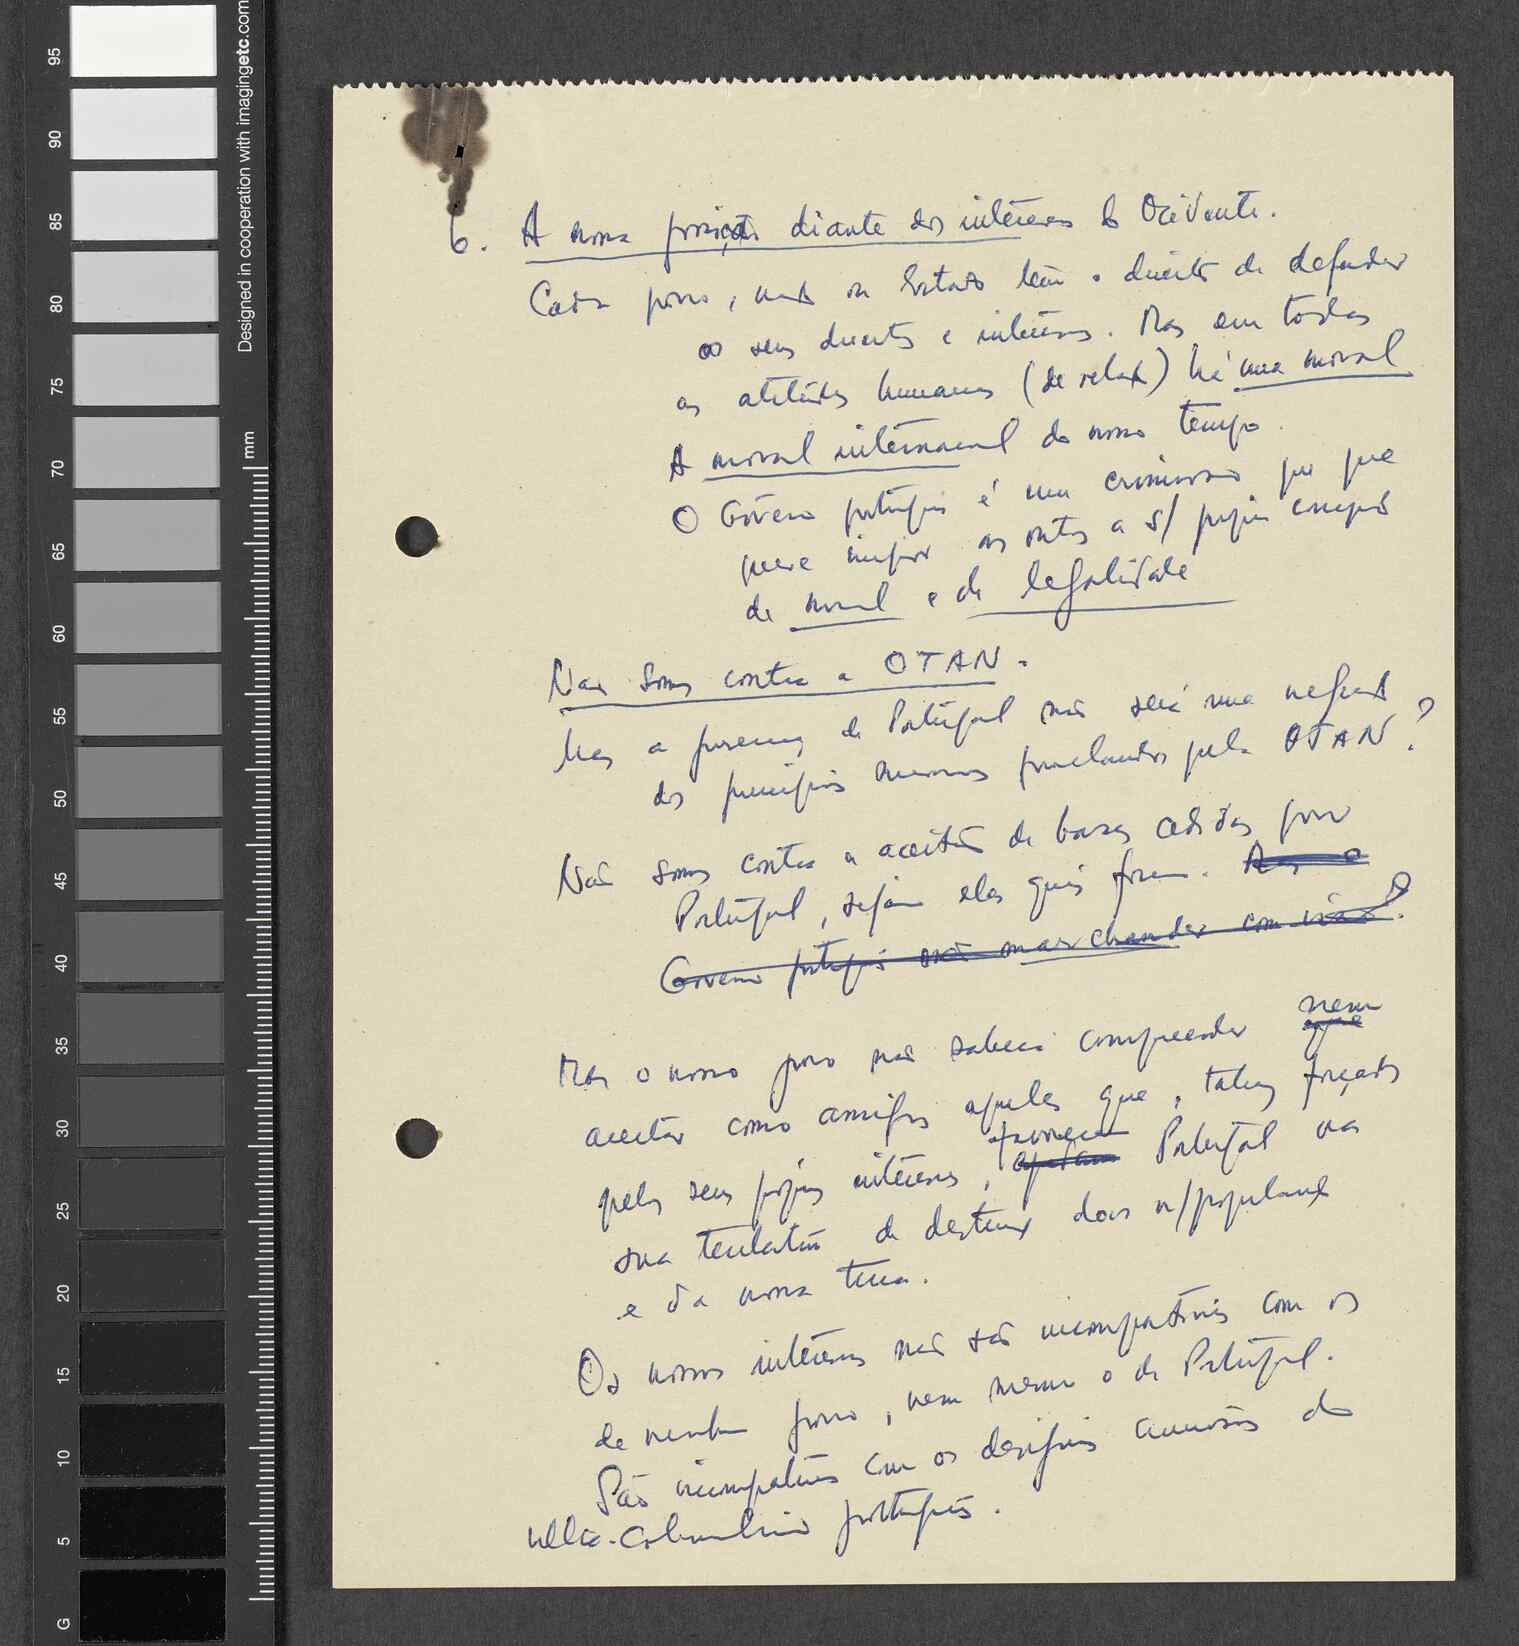 Designed in cooperation with imagingetc.com
mm
95
90
85
80
75
70
65
60
55
50
45
40
35
30
25
20
15
10
5
G
6. A nossa posição diante dos interêsses do Ocidente.
Cada povo, cada Estado tem o direito de defender
os seus direitos e interêsses. Mas em todas
as atitudes humanas (de relação) há uma moral
A moral internacional do nosso tempo.
O Govêrno português é um criminoso que
quere impôr aos outros a s/ própria concepção
de moral e de legalidade
Não somos contra a OTAN.
Mas a presença de Portugal não será uma negação
dos princípios mesmos proclamados pela OTAN?
Não somos contra a aceitação de bases cedidas por
Portugal, sejam elas quais forem. Mas o
Govêrno português
Mas o nosso povo não saberá compreender nem
aceitar como amigos aqueles que, talvez forçados
pelos seus próprios interêsses, favorecem Portugal na
sua tentativa de destruição das n/populações
e da nossa terra.
Os nossos interêsses não são incompatíveis com os
de nenhum povo, nem mesmo o de Portugal.
São incompatíveis com os desígnios criminosos do
ultra-colonialismo português.